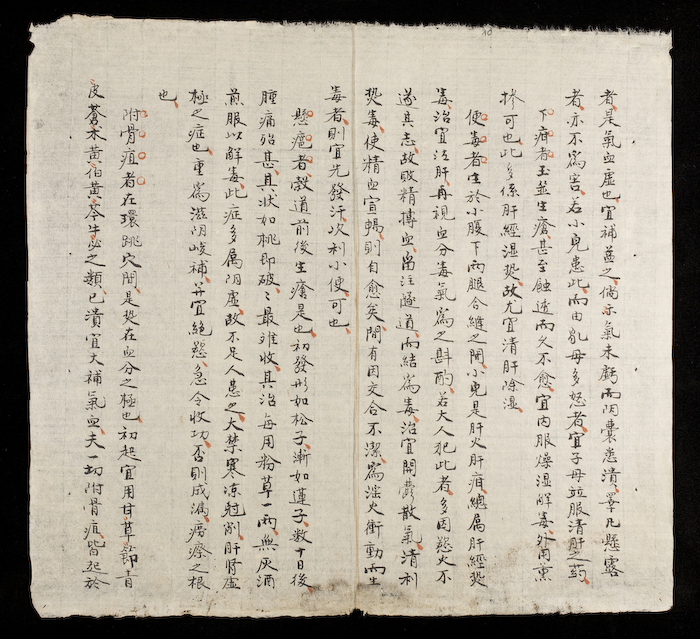 者是氣血虛也宜補益之倘亦氣未虧而阴囊患潰睪丸懸露
者亦不為害若小兒患此而由乳母多怒者宜子母並服清肝之药
下疳者玉莖生瘡甚至蝕透而久不愈宜内服燥湿解毒外用薰
摻可也此多係肝經湿热故尤宜清肝除湿
便毒者生於小腹下两腿合縫之間小兒是肝火肝疳總属肝經热
毒治宜泣肝再視血分毒氣為之斟酌若大人犯此者多因慾火不
遂其志故敗精摶血留注隧道而結為毒治宜開欝散氣清利
热毒使精血宣暢則自愈矣間有因交合不潔為淫火衝動而生
毒者則宜先發汗次利小便可也
懸癰者榖道前後生瘡是也初發形如松子漸如蓮子数十日後
腫痛殆甚其状如桃即破破最难收其治每用粉草一两無灰酒
煎服以解毒此症多属阴虛故不足人患之大禁寒凉尅削肝腎虛
極之症也重為滋阴峻補并宜絕慾急令收功否則成漏癆瘵之根
也
附骨疽者在環跳穴間是热在血分之極也初起宜用甘草節青
皮蒼术黄柏黄芩牛必之類已潰宜大補氣血夫一切附骨疽皆起於